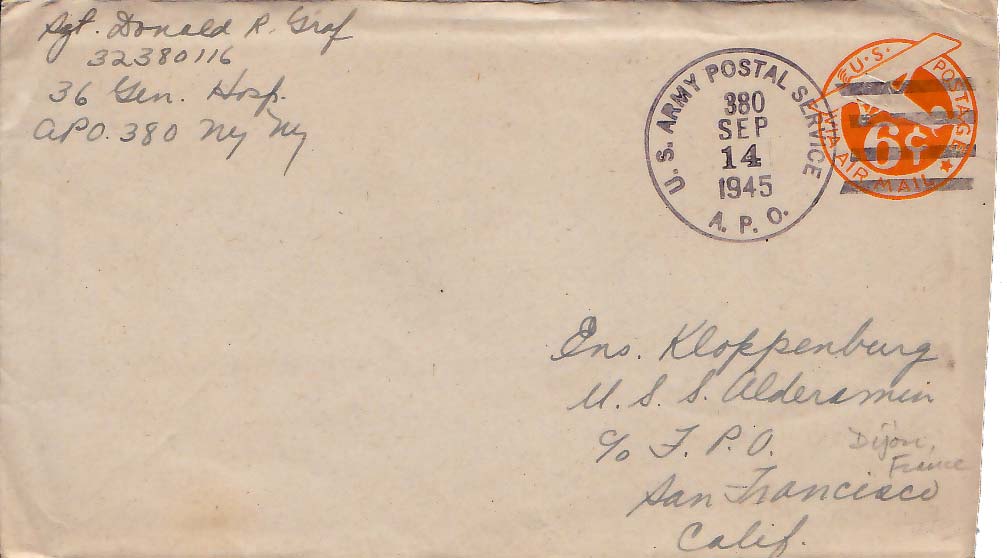 Sgt. Donald R. Graf
32380116
36 Gen. Hosp.
APO. 380 NY NY
U.S. ARMY POSTAL SERVICE
380
SEP
14
1945
A. P. O.
U·S· POSTAGE
6¢
VIA AIR MAIL
Ens. Kloppenburg
U. S. S. Alderamin
c/o F. P. O.
San Francisco
Calif.
Dijon,
France